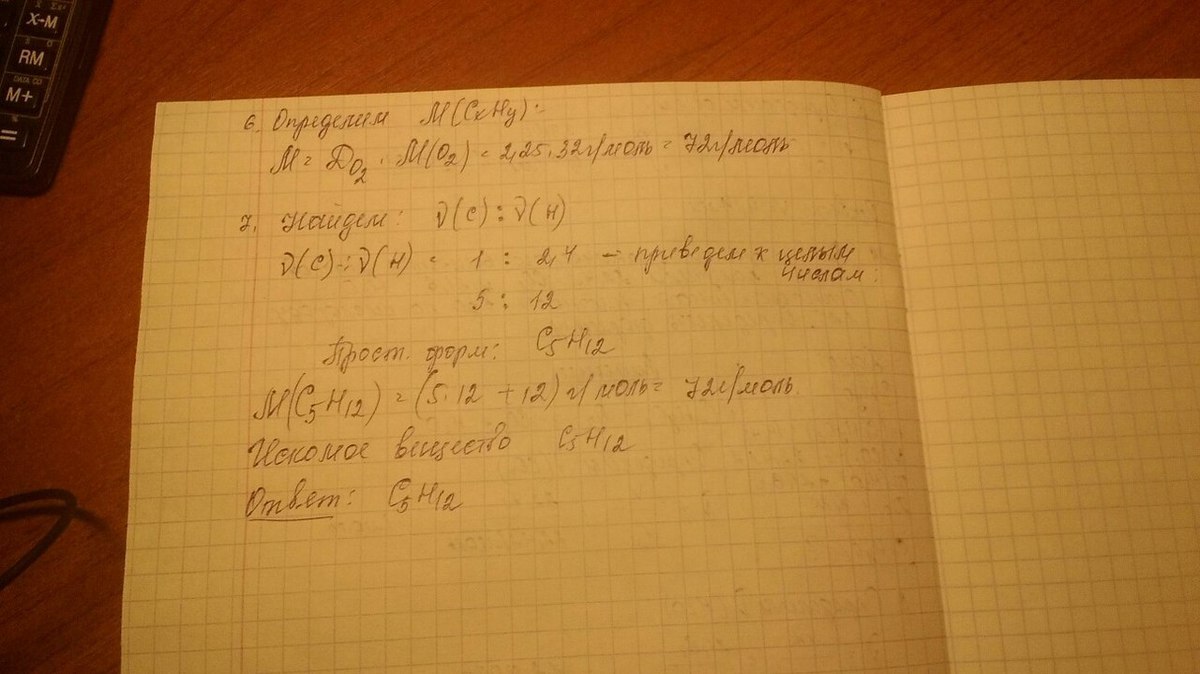 X→M
RM
DATA CD
M+
=
6. Определим M(CxHy):
M = DO2 · M(O2) = 2,25 · 32 г/моль = 72 г/моль
7. Найдем: ν(C) : ν(H)
ν(C) : ν(H) = 1 : 2,4 – приведем к целым
числам:
5 : 12
Прост. форм: C5H12
M(C5H12) = (5·12 + 12) г/моль = 72 г/моль
Искомое вещество C5H12
Ответ: C5H12